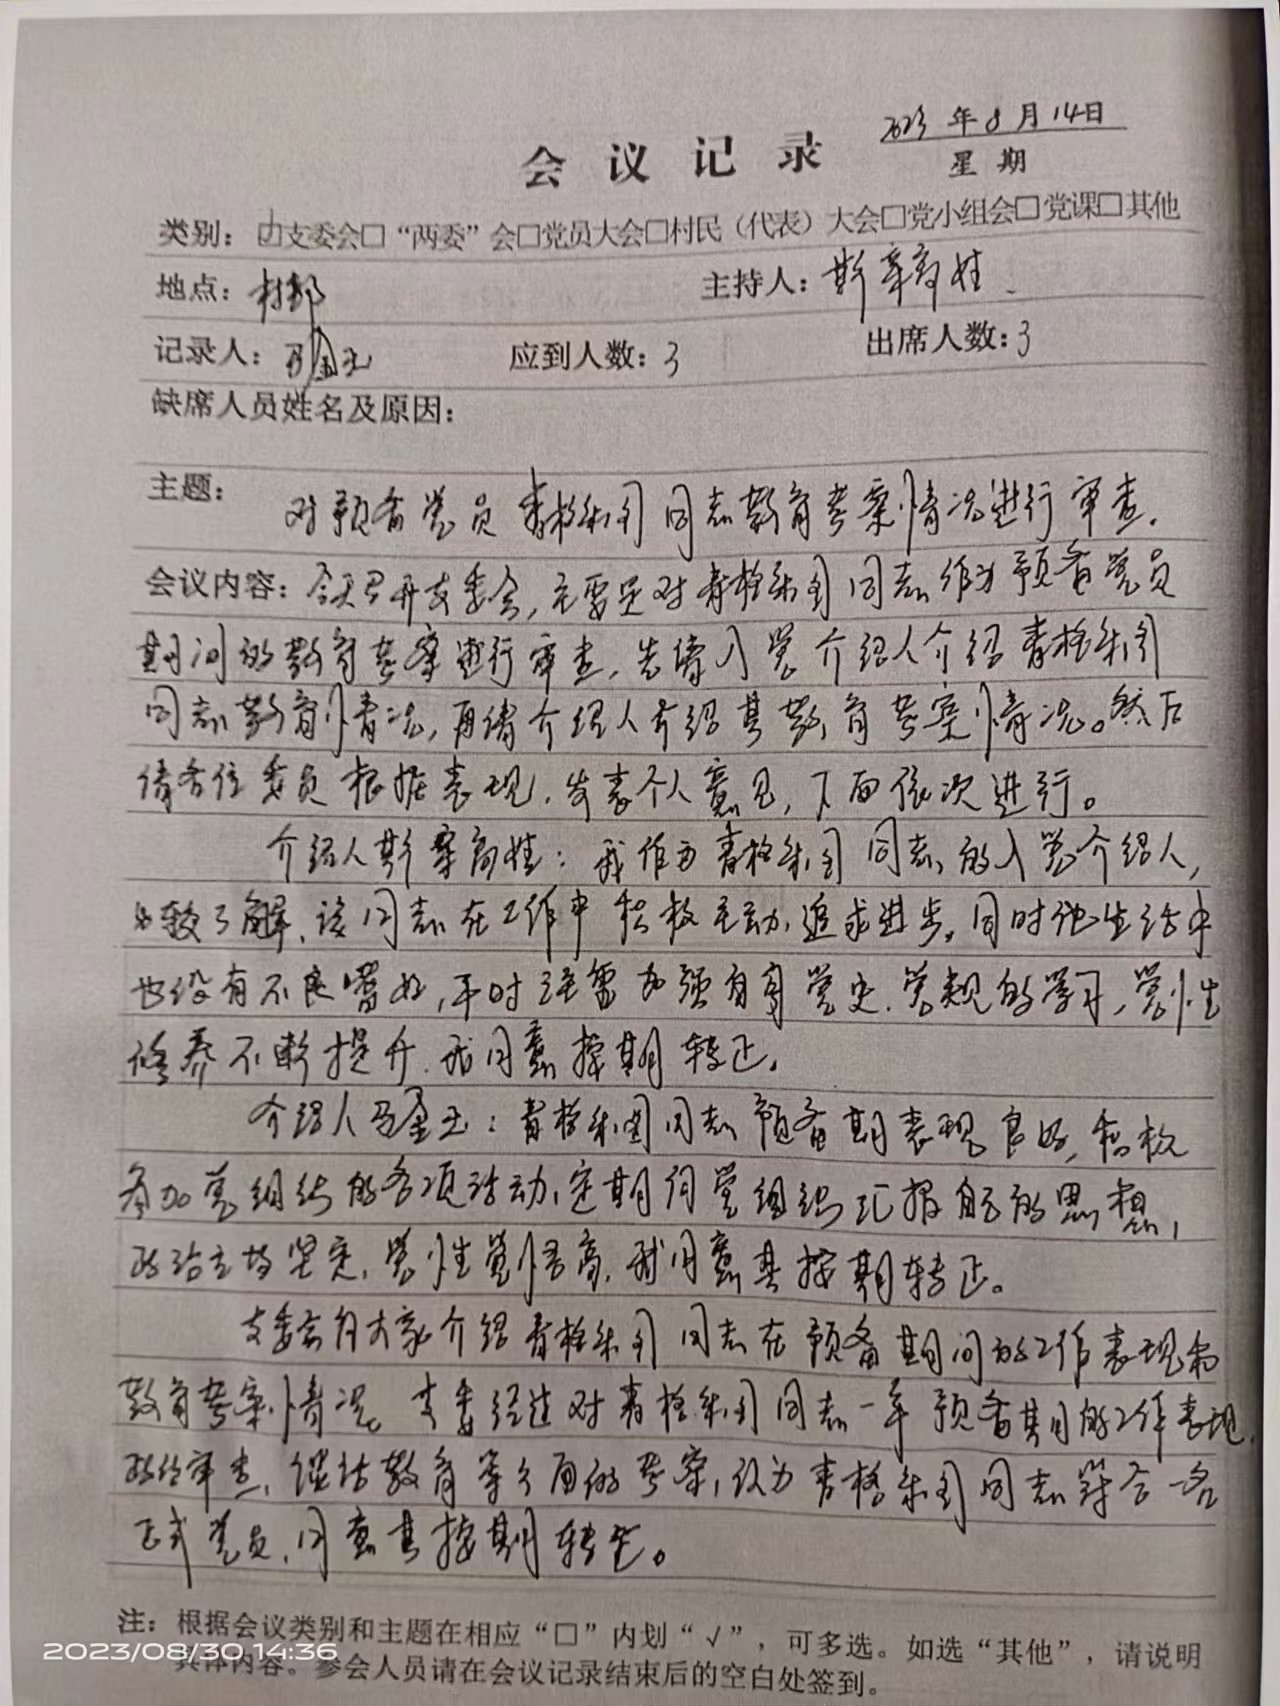 2023年8月14日
会议记录
星期
类别：☑支委会□“两委”会□党员大会□村民（代表）大会□党小组会□党课□其他
地点：村部
主持人：斯琴高娃
记录人：马金玉
应到人数：3
出席人数：3
缺席人员姓名及原因：
主题：对预备党员青格乐图同志教育考察情况进行审查。
会议内容：今天召开支委会，主要是对青格乐图同志作为预备党员
期间的教育考察进行审查，先请入党介绍人介绍青格乐图
同志教育情况，再请介绍人介绍其教育考察情况。然后
请各位委员根据表现，发表个人意见，下面依次进行。
介绍人斯琴高娃：我作为青格乐图同志的入党介绍人，
比较了解，该同志在工作中积极主动，追求进步。同时他生活中
也没有不良嗜好，平时注重加强自身党史、党规的学习，党性
修养不断提升，我同意按期转正。
介绍人马金玉：青格乐图同志预备期表现良好，积极
参加党组织的各项活动，定期向党组织汇报自己的思想，
政治立场坚定，党性觉悟高，我同意其按期转正。
支委会向大家介绍青格乐图同志在预备期间的工作表现和
教育考察情况。支委经过对青格乐图同志一年预备期的工作表现，
政治审查，谈话教育等方面的考察，认为青格乐图同志符合一名
正式党员，同意其按期转正。
注：根据会议类别和主题在相应“□”内划“√”，可多选。如选“其他”，请说明
具体内容。参会人员请在会议记录结束后的空白处签到。
2023/08/30 14:36